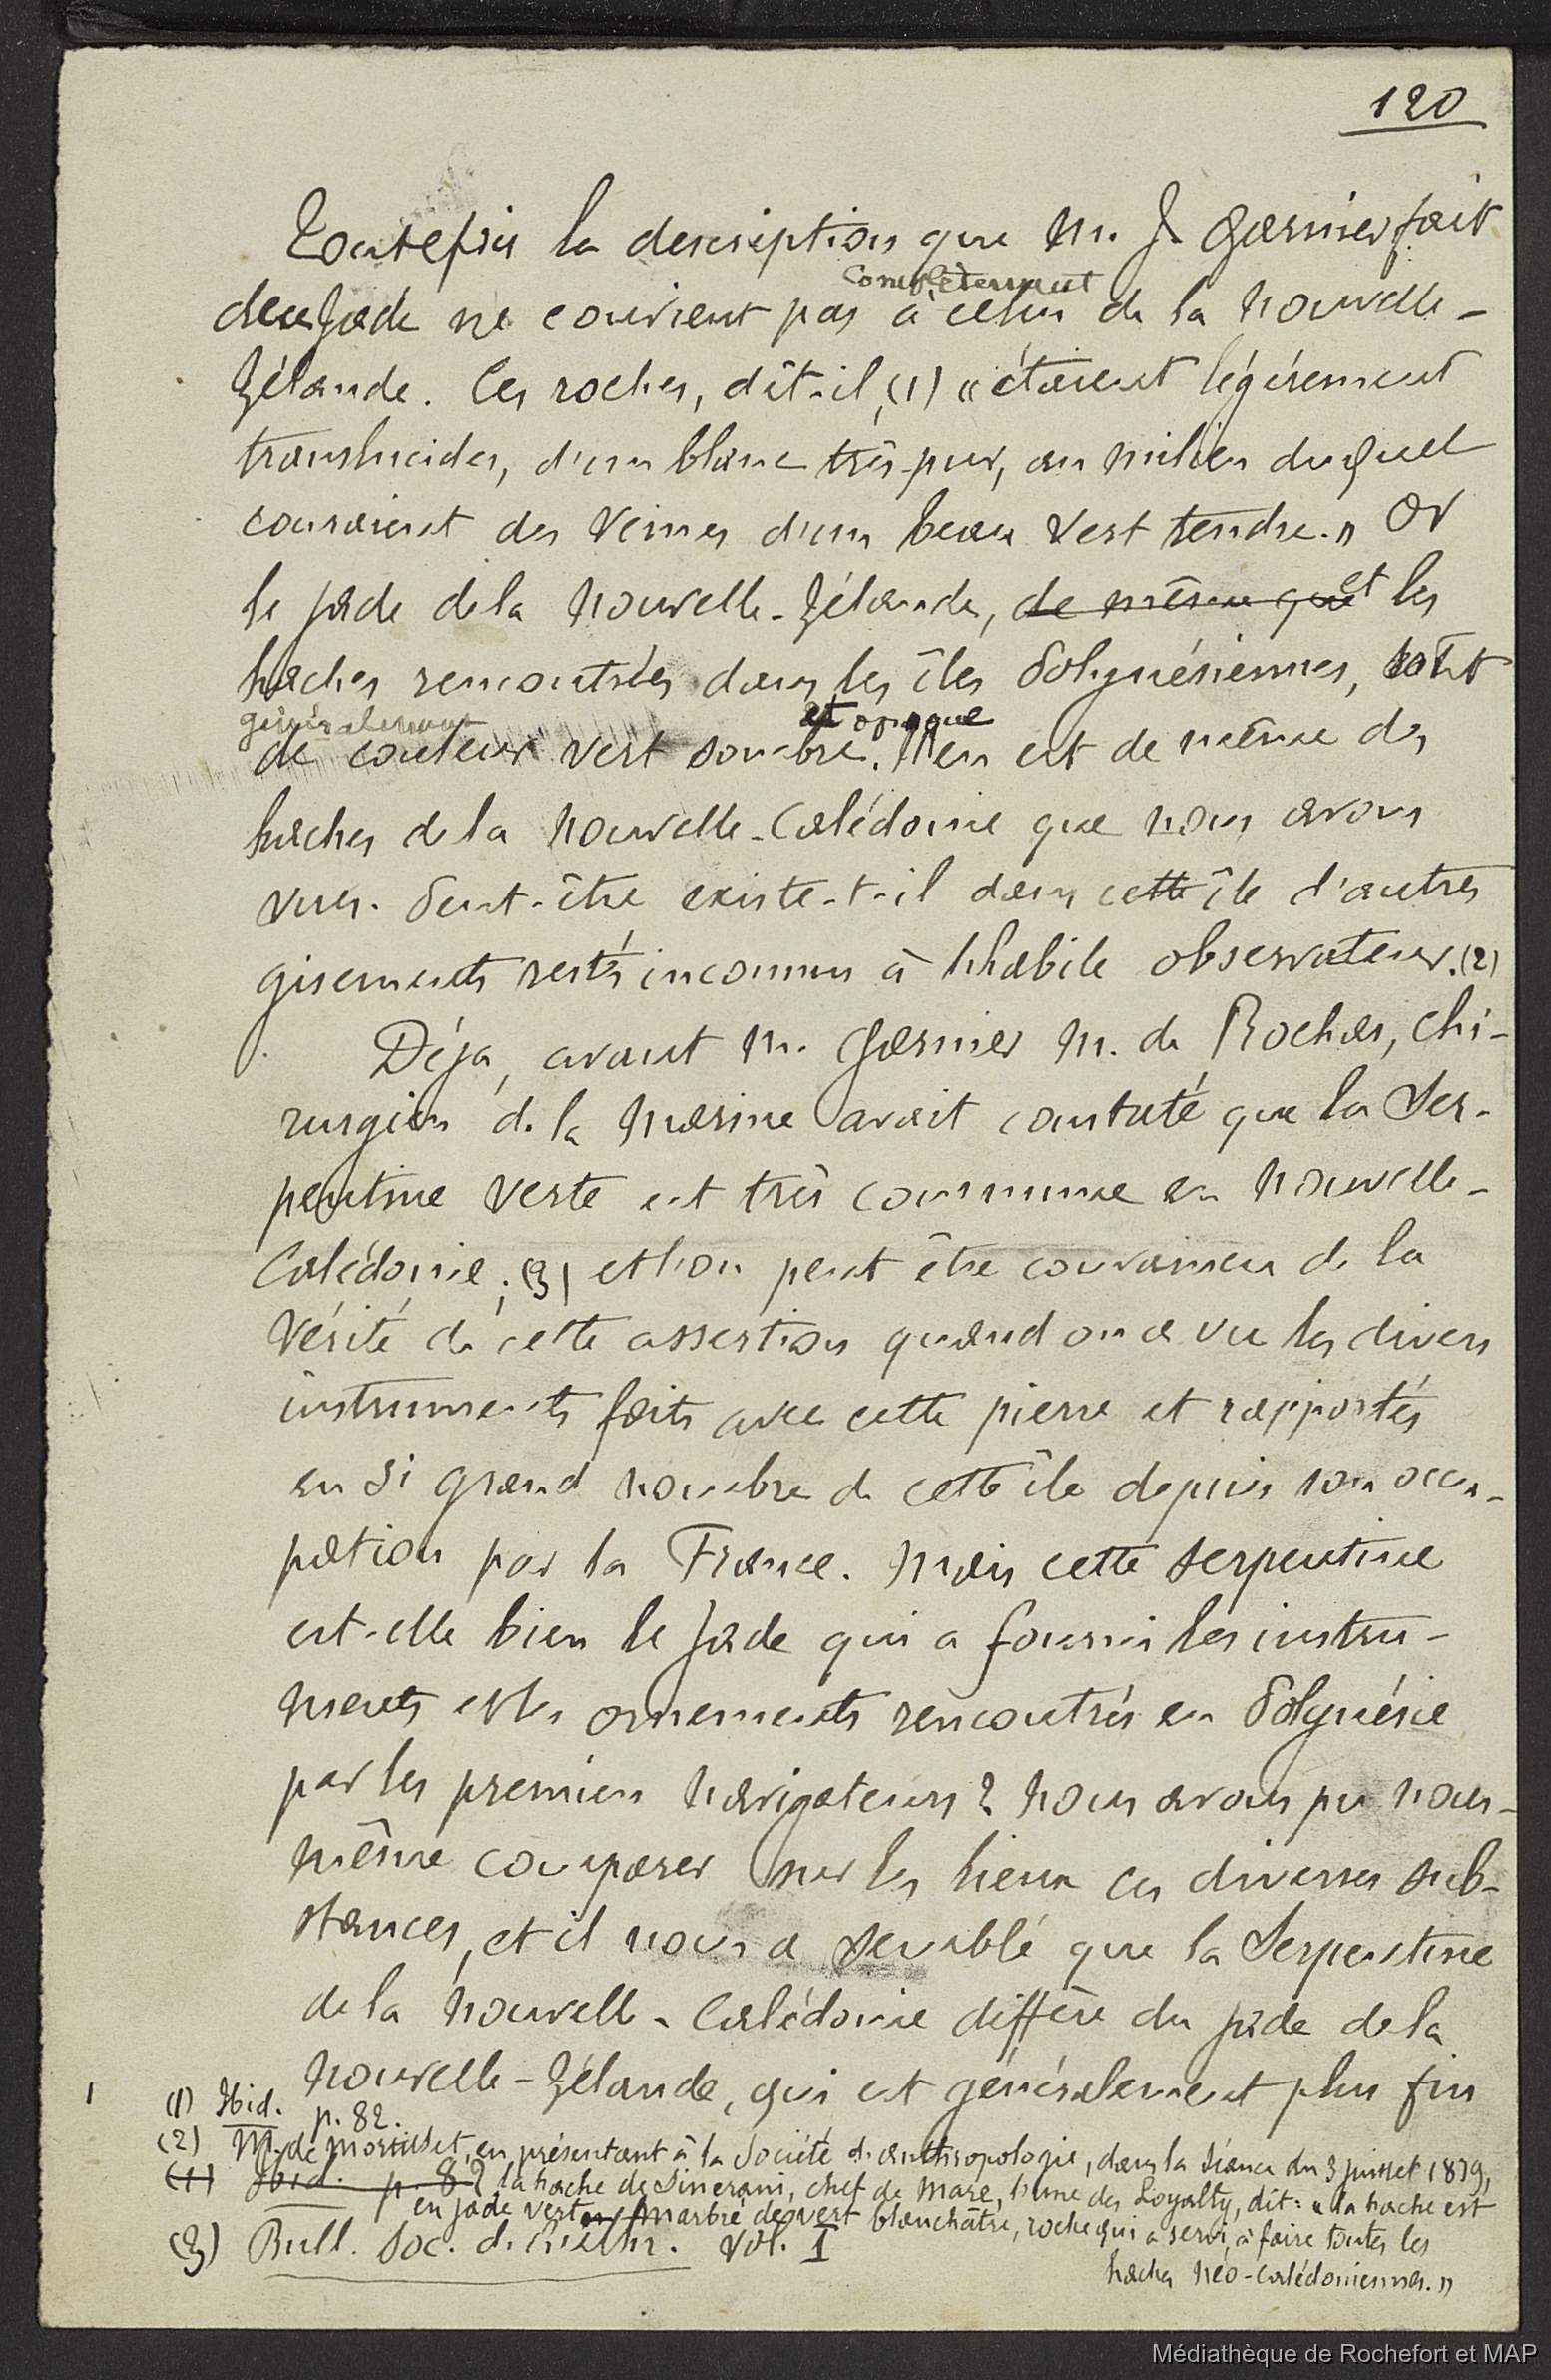 120
Toutefois la description que M. J. Garnier fait
complètement
de ce Jade ne convient pas à celui de la Nouvelle-
Zélande. Ces roches, dit-il, (1) « étaient légèrement
translucides, d'un blanc très-pur, au milieu duquel
couraient des veines d'un beau vert tendre. » Or
le jade de la Nouvelle-Zélande, de même que et les
haches rencontrées dans les îles Polynésiennes, sont
généralement et opaque
de couleur vert sombre. Il en est de même des
haches de la Nouvelle-Calédonie que nous avons
vues. Peut-être existe-t-il dans cette île d'autres
gisements restés inconnus à l'habile observateur. (2)
Déjà, avant M. Garnier M. de Rochas, chi-
rurgien de la Marine avait constaté que la Ser-
pentine verte est très commune en Nouvelle-
Calédonie ; (3) et l'on peut être convaincu de la
vérité de cette assertion quand on a vu les divers
instruments faits avec cette pierre et rapportés
en si grand nombre de cette île depuis son occu-
pation par la France. Mais cette serpentine
est-elle bien le Jade qui a fourni les instru-
ments et les ornements rencontrés en Polynésie
par les premiers navigateurs ? Nous avons pu nous-
même comparer sur les lieux ces diverses sub-
stances, et il nous a semblé que la Serpentine
de la Nouvelle-Calédonie diffère du jade de la
Nouvelle-Zélande, qui est généralement plus fin
(1) Ibid. p. 82.
(2) M. de Mortillet, en présentant à la Société d'anthropologie, dans la séance du 3 juillet 1879,
(1) Ibid. p. 82 la hache de Sinerani, chef de Maré, l'une des Loyalty, dit : « la hache est
en jade vert marbré de vert blanchâtre, roche qui a servi à faire toutes les
(3) Bull. Soc. d'Anthr. vol. I
haches néo-calédoniennes. »
Médiathèque de Rochefort et MAP